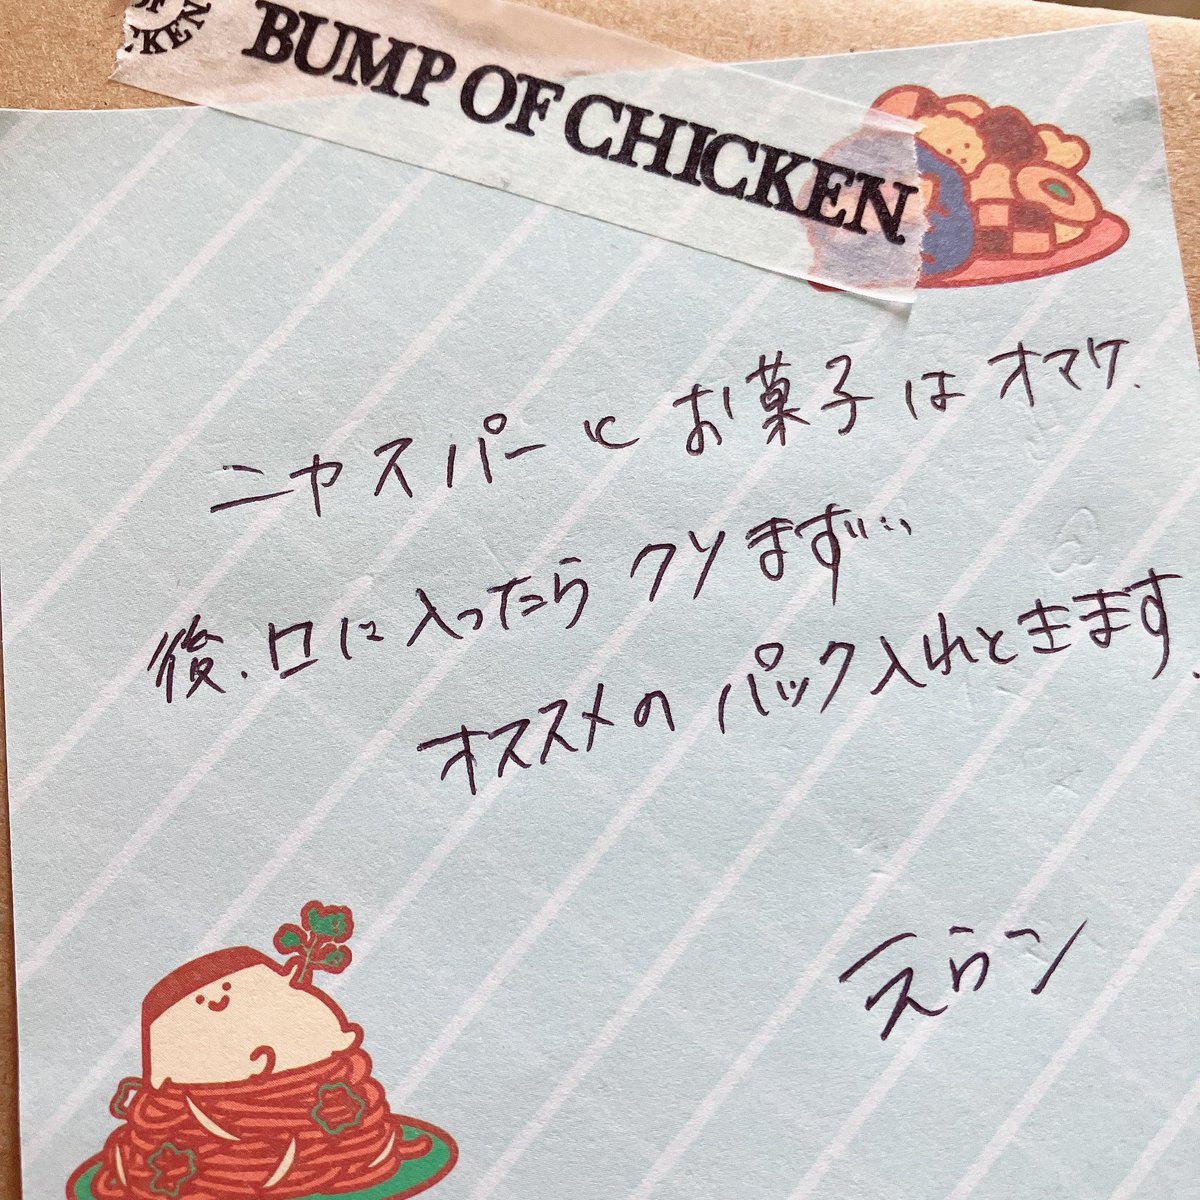 OF
CKEN
BUMP OF CHICKEN
ニャスパーとお菓子はオマケ.
後、口に入ったらクソまず…
オススメのパック入れときます.
えらン